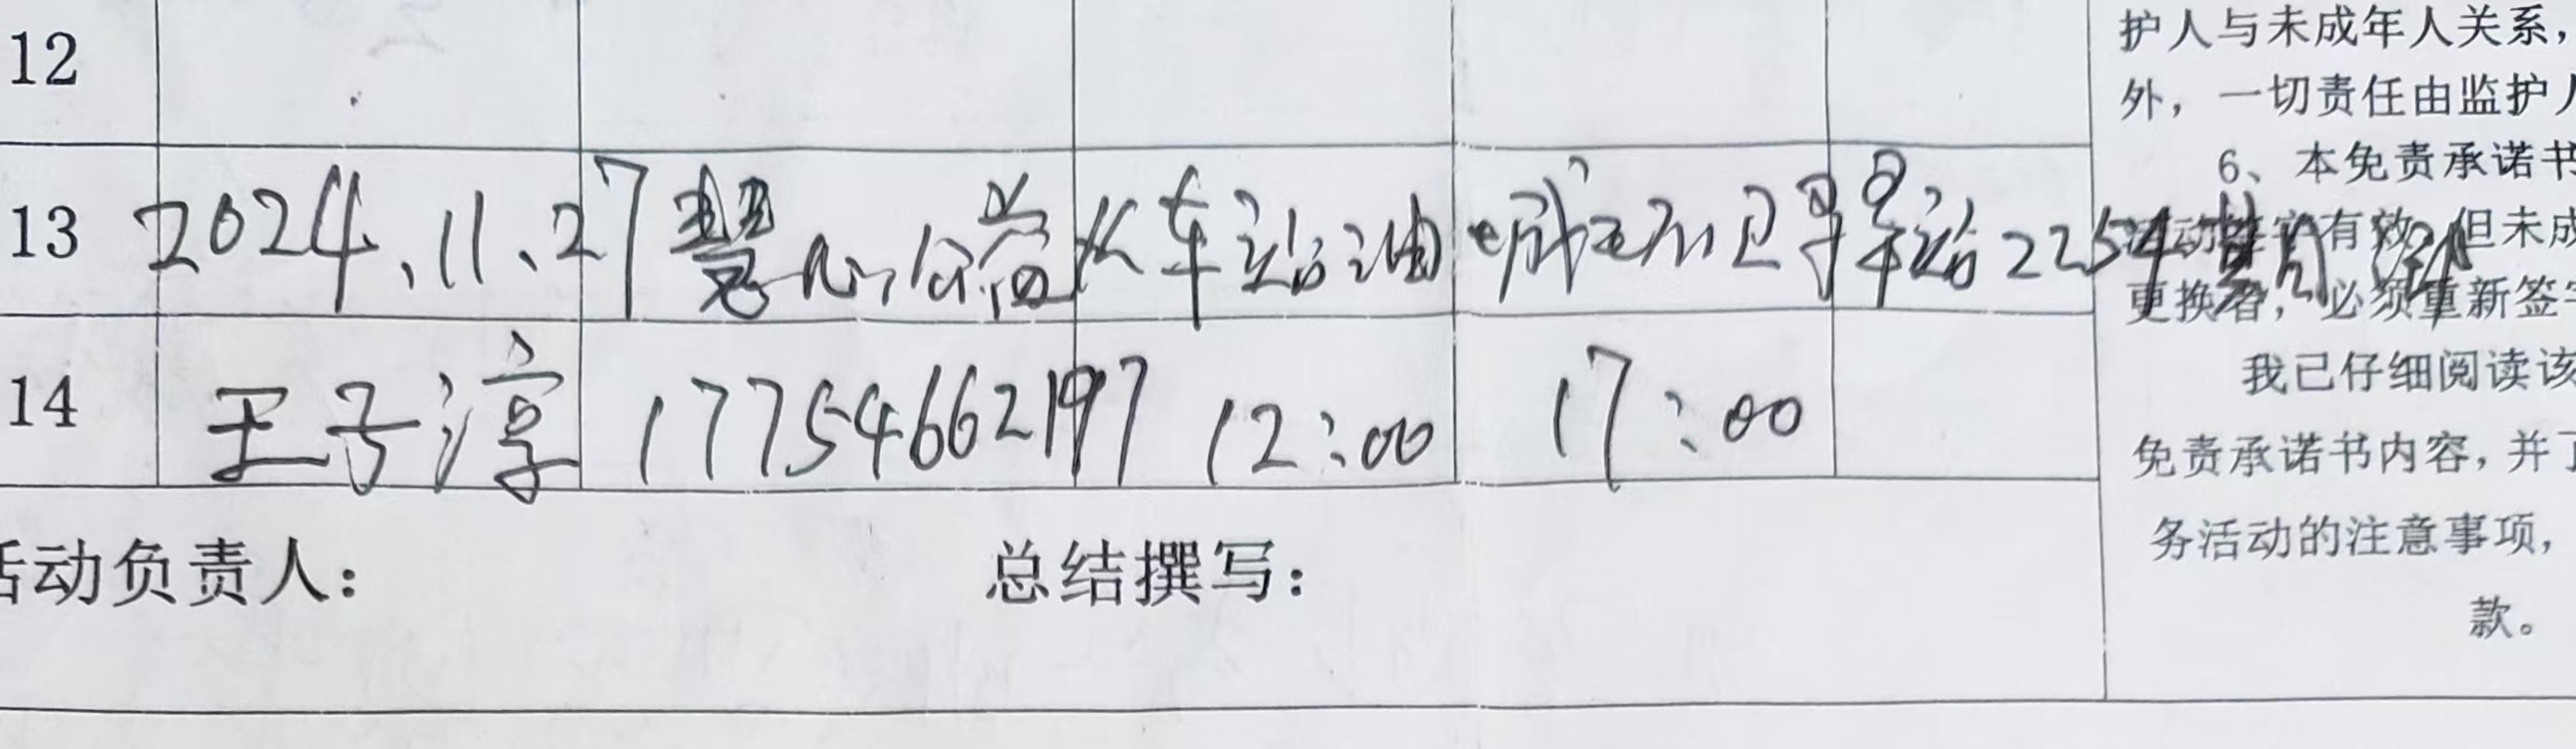 12
13 2024.11.27 慧心公益火车站
14 王子淳 17754662197 12:00 17:00
活动负责人： 总结撰写：
护人与未成年人关系，
外，一切责任由监护人
6、本免责承诺书
有效，但未成
更换者，必须重新签字
我已仔细阅读该
免责承诺书内容，并了
务活动的注意事项，
款。